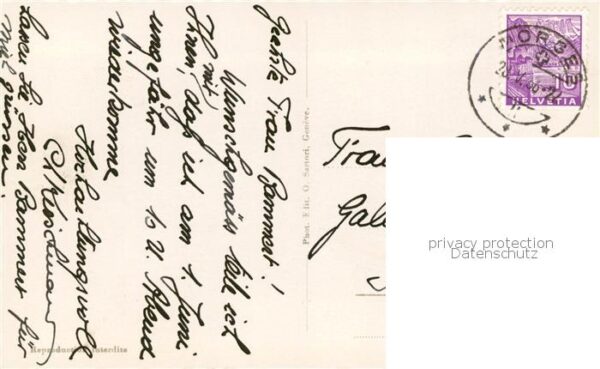 Geehrte Frau Bammert!
Wunschgemäss teile ich
Ihnen mit, daß ich am 1. Juni
ungefähr um 10 U. Abend
wiederkomme
Hochachtungsvoll
Lassen Sie Herr Bammert für
mich grüssen.
Phot. Edit. O. Sartori, Genève.
Reproduction interdite
MORGES
HELVETIA
Frau
privacy protection
Datenschutz